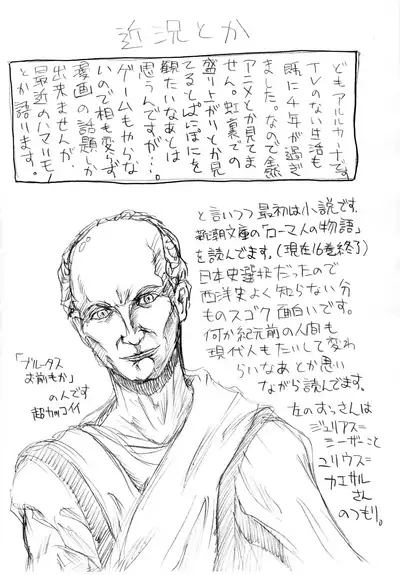 近況とか
どもアルカードです。
TVのない生活も
既に4年が過ぎ
ました。なので全然
アニメとか見てま
せん。虹裏での
盛り上がりとか見
てるとぱにぽにを
観たいなあとは
思うんですが…。
ゲームもやらな
いので相も変らず
漫画の話題しか
出来ませんが、
最近のハマりモノ
とか語ります。
と言いつつ最初は小説です。
新潮文庫の「ローマ人の物語」
を読んでます。(現在16巻終了)
日本史選択だったので
西洋史よく知らない分
ものスゴク面白いです。
何か紀元前の人間も
現代人もたいして変わ
らないなぁとか思い
ながら読んでます。
左のおっさんは
ジュリアス=
シーザーこと
ユリウス=
カエサル
さん
のつもり。
「ブルータス
お前もか」
の人です
超カッコイイ